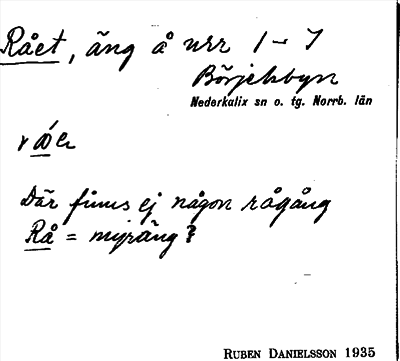 Rået, äng å nrr 1-7
Börjelsbyn
Nederkalix sn o. tg. Norrb. län
Där finns ej någon rågång
Rå = myräng?
RUBEN DANIELSSON 1935